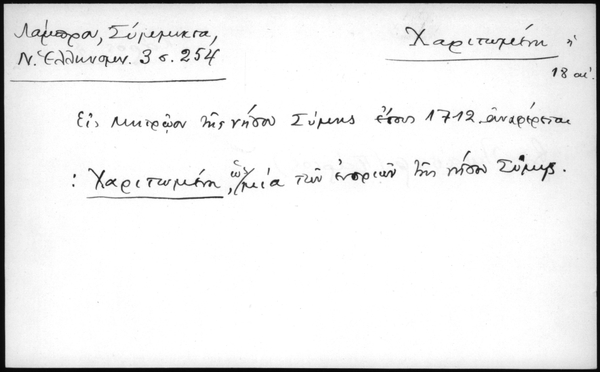 Λάμπρου, Σύμμικτα,
Ν. Ἑλληνομν. 3 σ. 254
Χαριτωμένη ἡ
18 αἰ.
Εἰς μητρῷον τῆς νήσου Σύμης ἔτους 1712 ἀναφέρεται
: Χαριτωμένη, ὡς μία τῶν ἐνοριῶν τῆς νήσου Σύμης.